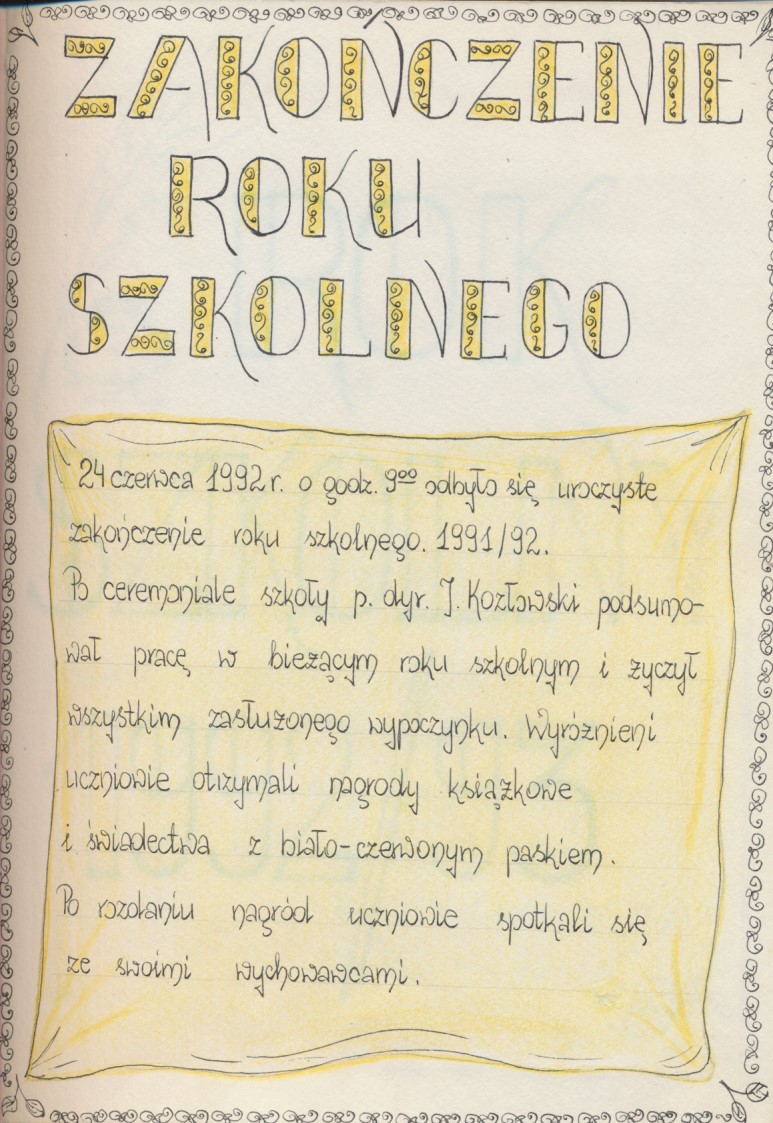 ZAKOŃCZENIE
ROKU
SZKOLNEGO
24 czerwca 1992 r. o godz. 9⁰⁰ odbyło się uroczyste
zakończenie roku szkolnego. 1991/92.
Po ceremoniale szkoły p. dyr. J. Kozłowski podsumo-
wał pracę w bieżącym roku szkolnym i życzył
wszystkim zasłużonego wypoczynku. Wyróżnieni
uczniowie otrzymali nagrody książkowe
i świadectwa z biało-czerwonym paskiem.
Po rozdaniu nagród uczniowie spotkali się
ze swoimi wychowawcami.